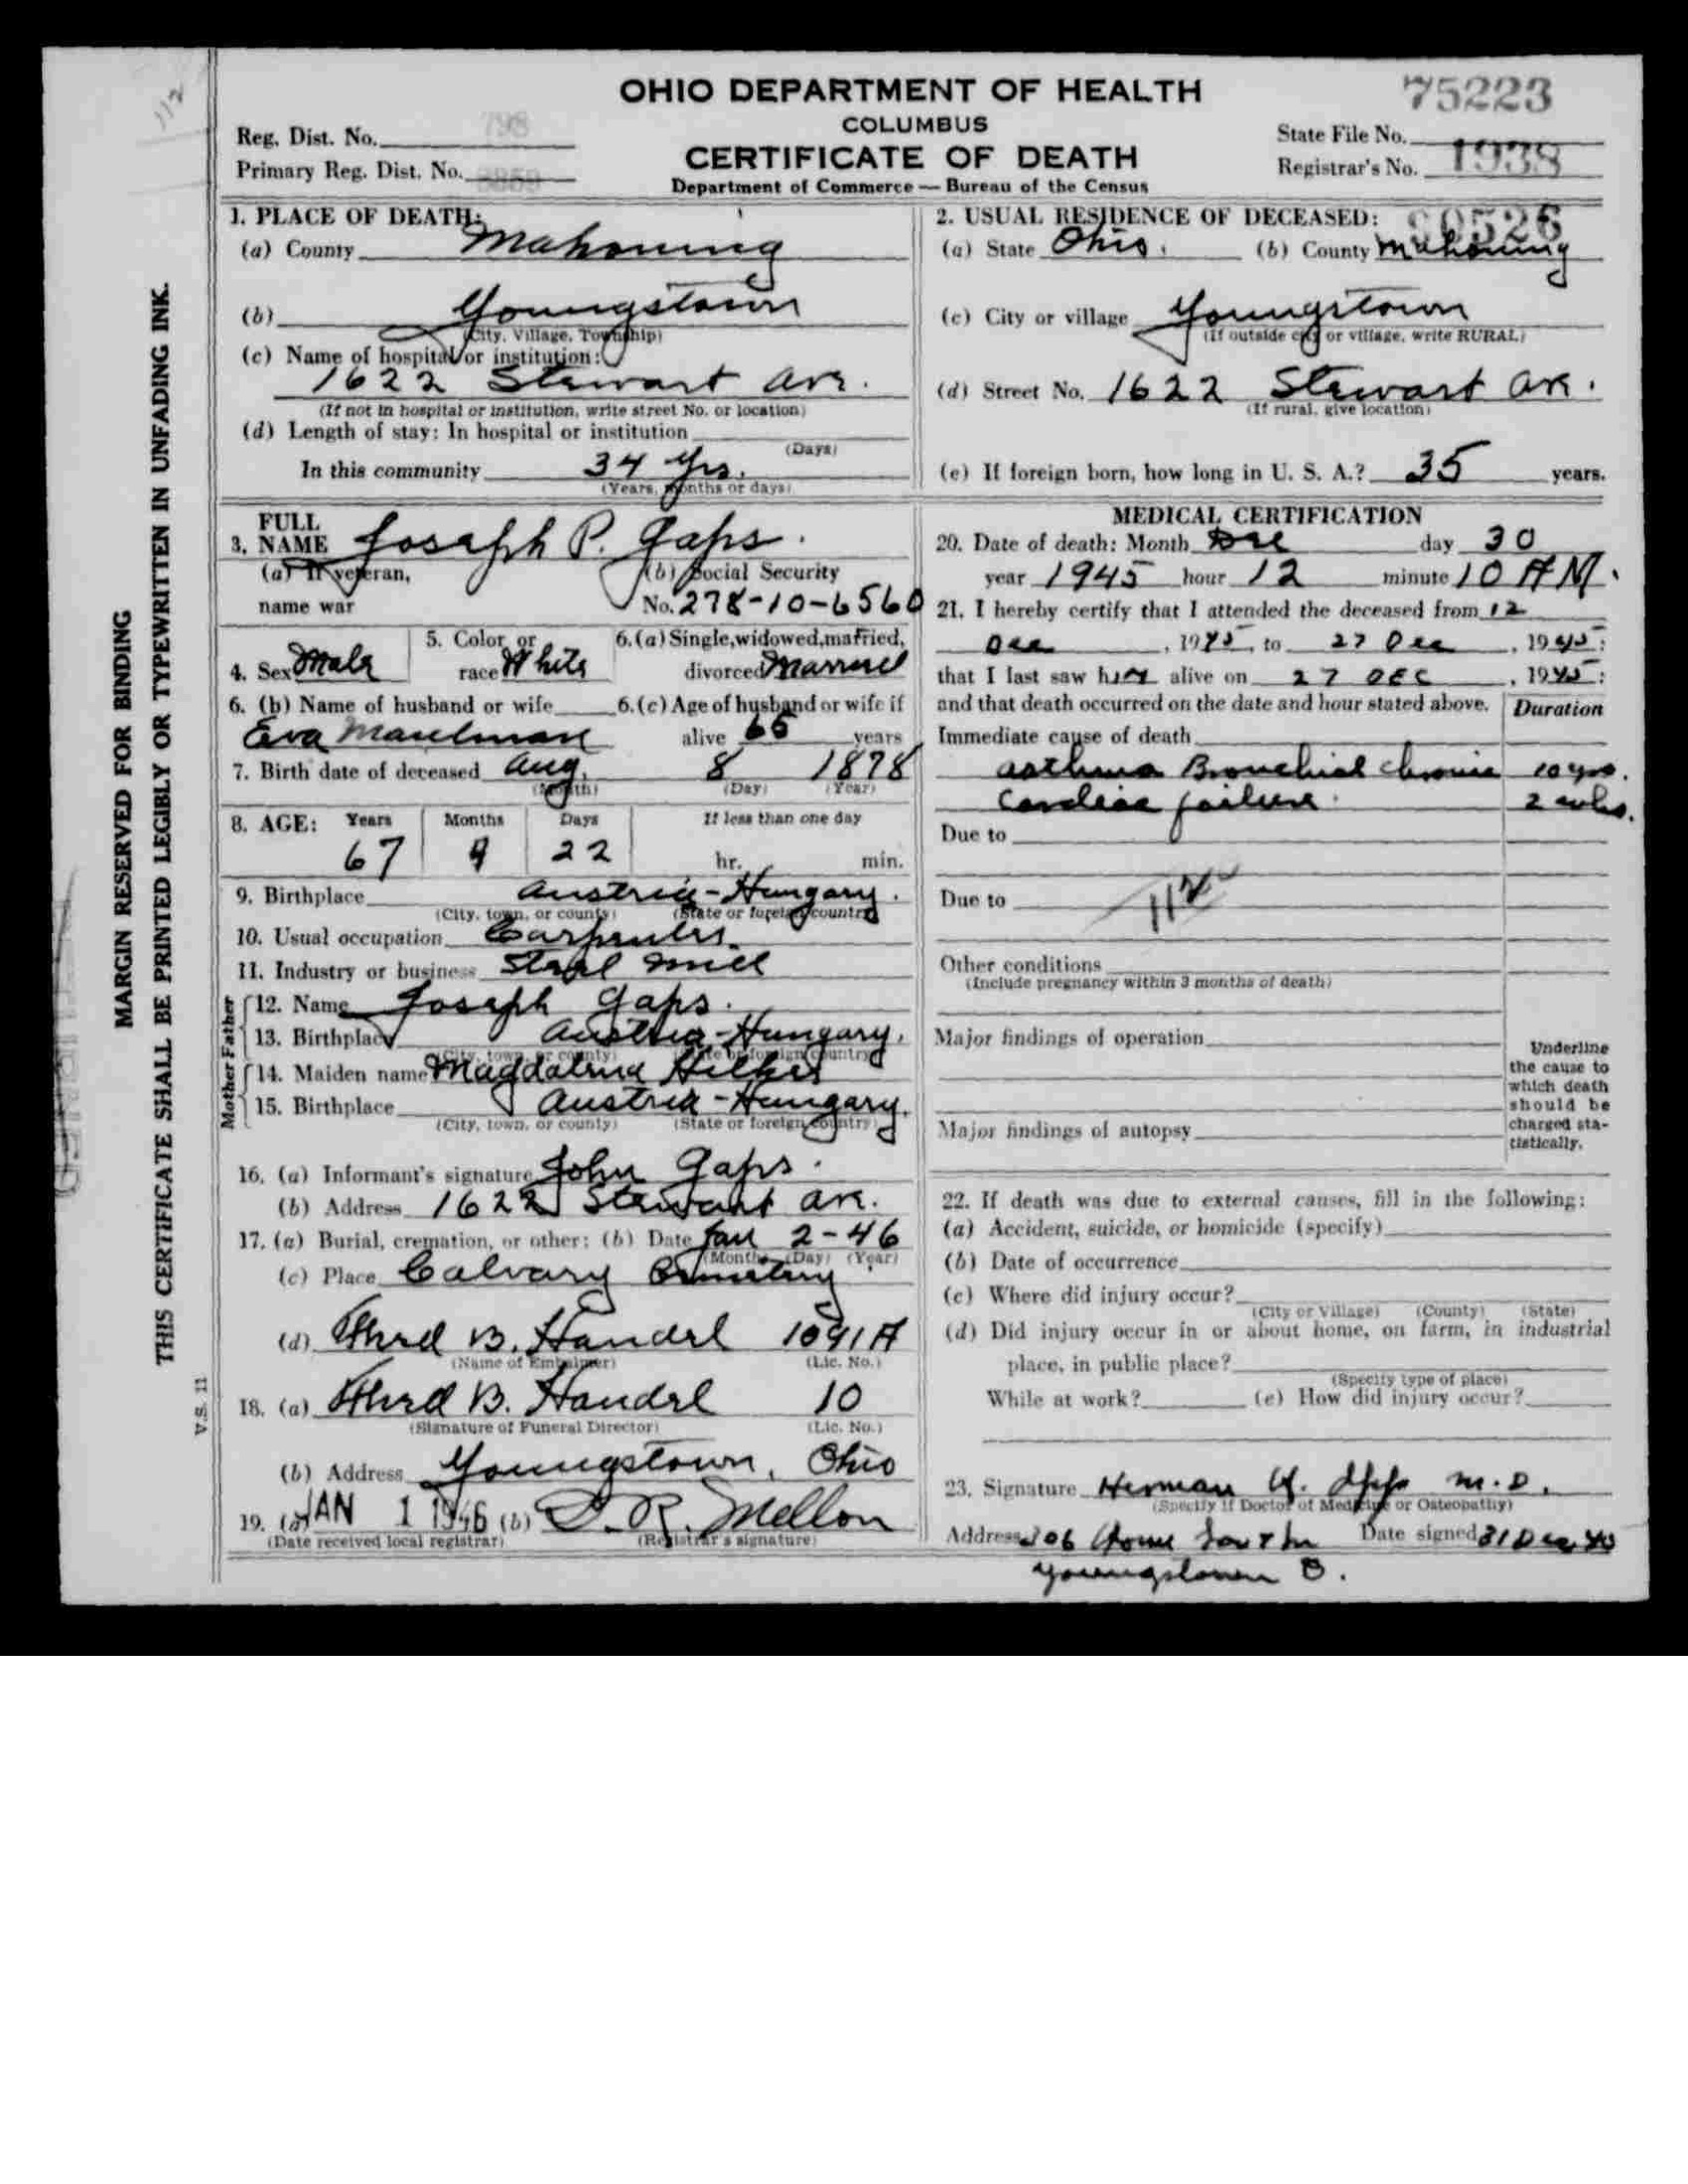 112
OHIO DEPARTMENT OF HEALTH
COLUMBUS
CERTIFICATE OF DEATH
Department of Commerce — Bureau of the Census
75223
Reg. Dist. No. 798
Primary Reg. Dist. No.
State File No.
Registrar's No. 1938
1. PLACE OF DEATH:
(a) County Mahoning
(b) Youngstown
(City, Village, Township)
(c) Name of hospital or institution:
1622 Stewart Ave.
(If not in hospital or institution, write street No. or location)
(d) Length of stay: In hospital or institution
(Days)
In this community 34 Yrs.
(Years, months or days)
2. USUAL RESIDENCE OF DECEASED:
(a) State Ohio. (b) County Mahoning
(c) City or village Youngstown
(If outside city or village, write RURAL)
(d) Street No. 1622 Stewart Ave.
(If rural, give location)
(e) If foreign born, how long in U. S. A.? 35 years.
3. FULL NAME Joseph P. Gaps.
(a) If veteran, name war
(b) Social Security No. 278-10-6560
4. Sex Male
5. Color or race White
6. (a) Single, widowed, married, divorced Married
6. (b) Name of husband or wife
Eva
6. (c) Age of husband or wife if alive 65 years
7. Birth date of deceased Aug. 8 1878
(Month) (Day) (Year)
8. AGE: Years Months Days If less than one day
67 4 22 hr. min.
9. Birthplace Austria-Hungary.
(City, town, or county) (State or foreign country)
10. Usual occupation Carpenter.
11. Industry or business Steel Mill
Father
12. Name Joseph Gaps.
13. Birthplace Austria-Hungary.
(City, town, or county) (State or foreign country)
Mother
14. Maiden name Magdalena
15. Birthplace Austria-Hungary.
(City, town, or county) (State or foreign country)
16. (a) Informant's signature John Gaps.
(b) Address 1622 Stewart Ave.
17. (a) Burial, cremation, or other: (b) Date Jan 2-46
(Month) (Day) (Year)
(c) Place Calvary Cemetery
(d) B. Handel 1091A
(Name of Embalmer) (Lic. No.)
18. (a) B. Handel 10
(Signature of Funeral Director) (Lic. No.)
(b) Address Youngstown, Ohio
19. (a) JAN 1 1946 (b) R. Mellon
(Date received local registrar) (Registrar's signature)
MEDICAL CERTIFICATION
20. Date of death: Month Dec day 30
year 1945 hour 12 minute 10 AM.
21. I hereby certify that I attended the deceased from 12
Dec, 1945, to 27 Dec, 1945;
that I last saw him alive on 27 DEC, 1945;
and that death occurred on the date and hour stated above. Duration
Immediate cause of death
Asthma Bronchial chronic 10 yrs.
Cardiac failure 2 wks.
Due to
Due to
112
Other conditions
(Include pregnancy within 3 months of death)
Major findings of operation
Major findings of autopsy
Underline the cause to which death should be charged statistically.
22. If death was due to external causes, fill in the following:
(a) Accident, suicide, or homicide (specify)
(b) Date of occurrence
(c) Where did injury occur?
(City or Village) (County) (State)
(d) Did injury occur in or about home, on farm, in industrial
place, in public place?
(Specify type of place)
While at work? (e) How did injury occur?
23. Signature Herman M.D.
(Specify if Doctor of Medicine or Osteopathy)
Address 206 Home Date signed 31 Dec 45
Youngstown O.
MARGIN RESERVED FOR BINDING
THIS CERTIFICATE SHALL BE PRINTED LEGIBLY OR TYPEWRITTEN IN UNFADING INK.
V.S. 11